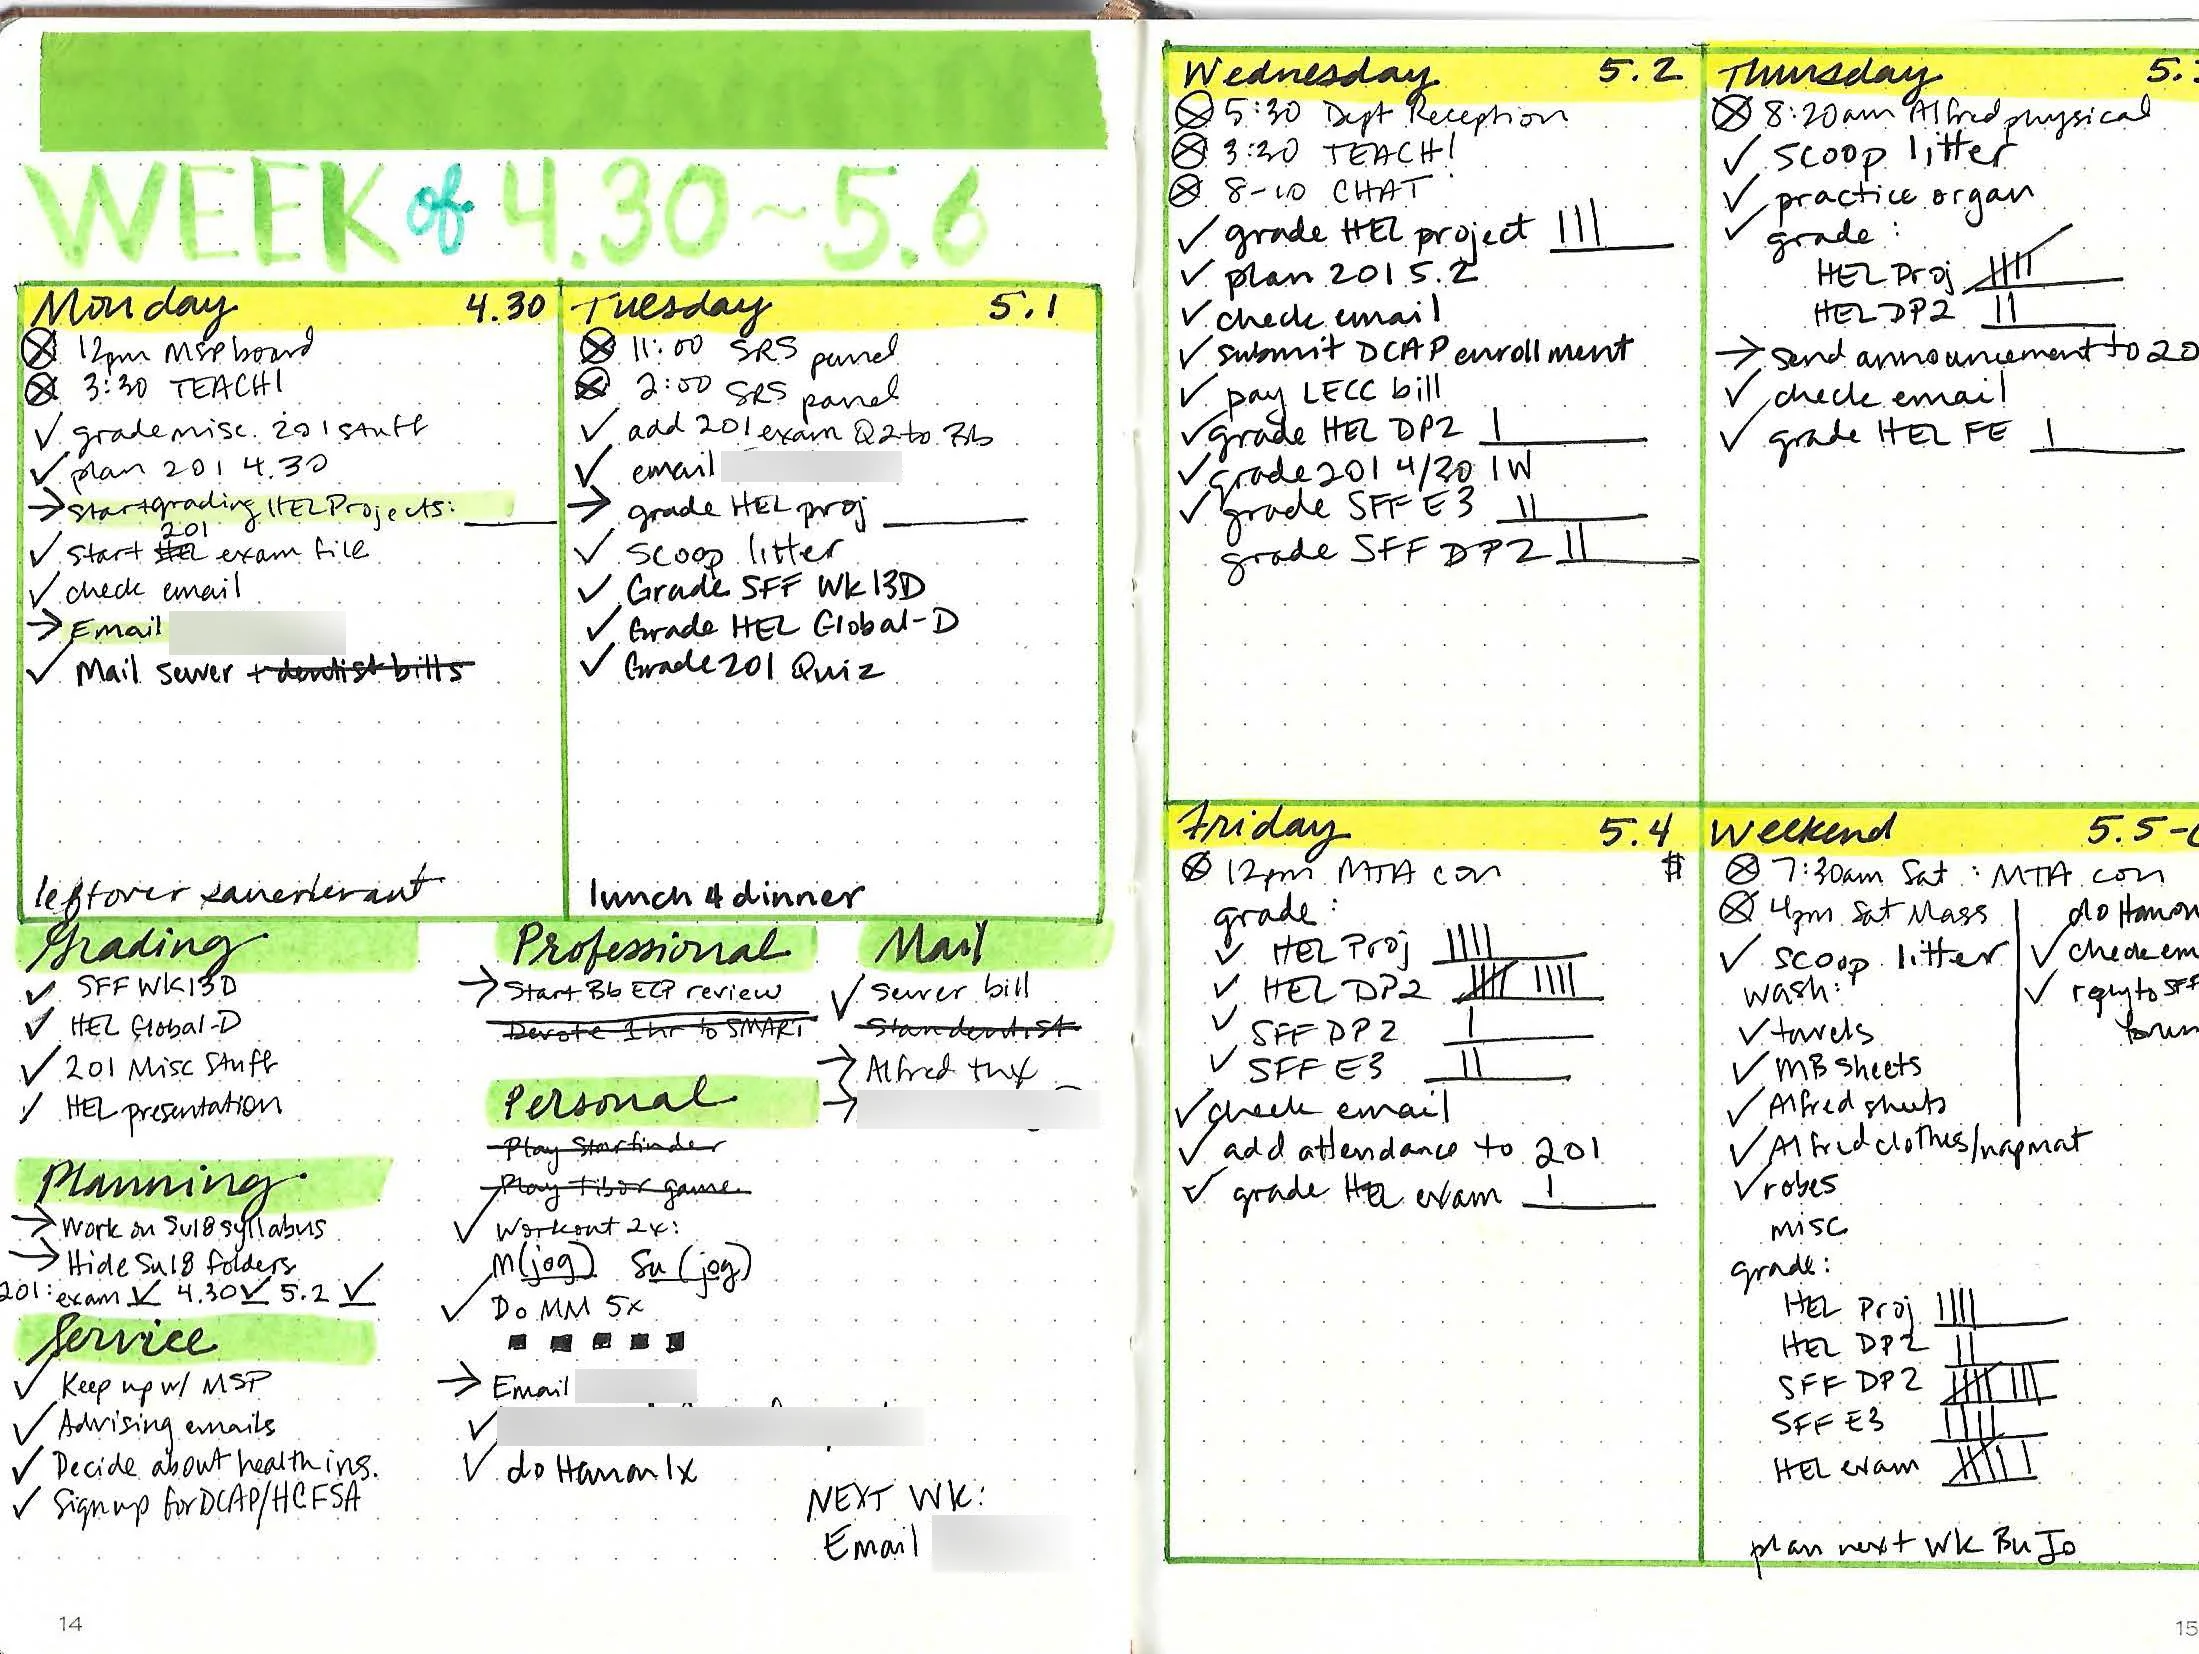 WEEK of 4.30~5.6
Monday 4.30
12pm MSP board
3:30 TEACH!
✓ grade misc. 201 stuff
✓ plan 201 4.30
→ Start grading HEL Projects:
201
✓ start HEL exam file
✓ check email
→ Email
✓ Mail sewer + dentist bills
leftover sauerkraut
Tuesday 5.1
11:00 SRS panel
2:00 SRS panel
✓ add 201 exam Q2 to Bb
✓ email
→ grade HEL proj
✓ scoop litter
✓ Grade SFF Wk 13D
✓ Grade HEL Global-D
✓ Grade 201 Quiz
lunch 4 dinner
Grading
✓ SFF WK13D
✓ HEL Global-D
✓ 201 Misc Stuff
✓ HEL presentation
Planning
→ Work on Su18 syllabus
→ Hide Su18 folders
201: exam ✓ 4.30 ✓ 5.2 ✓
Service
✓ Keep up w/ MSP
✓ Advising emails
✓ Decide about health ins.
✓ Sign up for DCAP/HCFSA
Professional
→ Start Bb ECP review
Devote 1 hr to SMART
Personal
Play Starfinder
Play Tibor game
✓ Workout 2x:
M (jog) Su (jog)
✓ Do MM 5x
→ Email
✓
✓ do Hanon 1x
Mail
✓ Sewer bill
Stan dentist
→ Alfred thx
→
NEXT WK:
Email
14
Wednesday 5.2
5:30 Dept Reception
3:30 TEACH!
8-10 CHAT
✓ grade HEL project III
✓ plan 201 5.2
✓ check email
✓ submit DCAP enrollment
✓ pay LECC bill
✓ grade HEL DP2 I
✓ grade 201 4/30 IW
✓ grade SFF E3 II
grade SFF DP2 II
Thursday 5.
8:20am Alfred physical
✓ scoop litter
✓ practice organ
✓ grade:
HEL Proj IIII
HEL DP2 II
→ send announcement to 20
✓ check email
✓ grade HEL FE I
Friday 5.4
12pm MTA con $
grade:
✓ HEL Proj IIII
✓ HEL DP2 IIII IIII
✓ SFF DP2 I
✓ SFF E3 II
✓ check email
✓ add attendance to 201
✓ grade HEL exam I
Weekend 5.5-
7:30am Sat: MTA con
4pm Sat Mass
✓ scoop litter
wash:
✓ towels
✓ MB sheets
✓ Alfred sheets
✓ Alfred clothes/napmat
✓ robes
misc
grade:
HEL Proj IIII
HEL DP2 II
SFF DP2 IIII III
SFF E3 IIII
HEL exam IIII I
plan next wk BuJo
do Hanon
✓ check em
✓ reply to SFF
15